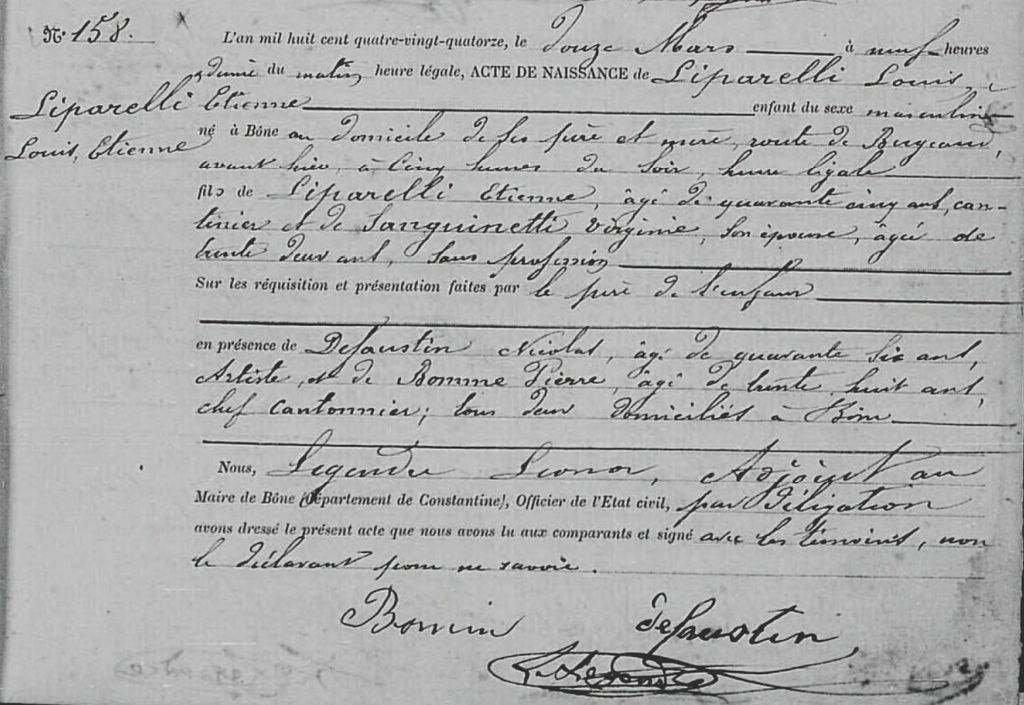 N° 158.
L'an mil huit cent quatre-vingt-quatorze, le douze Mars à neuf heures
& demie du matin, heure légale, ACTE DE NAISSANCE de Liparelli Louis,
Liparelli Etienne enfant du sexe masculin
Louis, Etienne
né à Bône au domicile de ses père et mère, route de Bugeaud,
avant hier, à cinq heures du soir, heure légale
fils de Liparelli Etienne, âgé de quarante cinq ans, can-
tinier et de Sanguinetti Virginie, son épouse, âgée de
trente deux ans, sans profession
Sur les réquisition et présentation faites par le père de l'enfant
en présence de Defaustin Nicolas, âgé de quarante six ans,
Artiste, et de Bomme Pierre, âgé de trente huit ans,
chef cantonnier; tous deux domiciliés à Bône
Nous, Legendre Leonor, Adjoint au
Maire de Bône (Département de Constantine), Officier de l'Etat civil, par délégation
avons dressé le présent acte que nous avons lu aux comparants et signé avec les témoins, non
le déclarant pour ne savoir.
Defaustin
L. Legendre